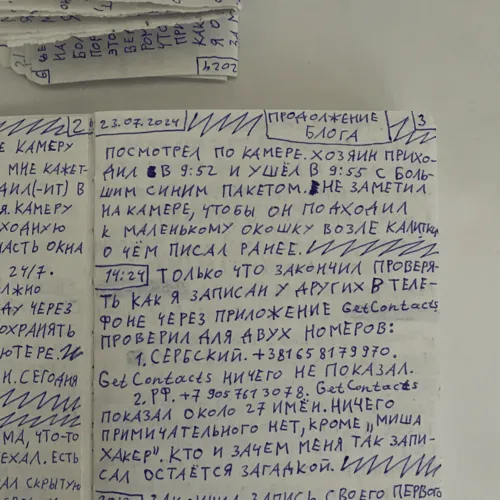 2024
2
23.07.2024
ПРОДОЛЖЕНИЕ БЛОГА
3
Е КАМЕРУ
МНЕ КАЖЕТ-
ДИЛ(-ИТ) В
Я. КАМЕРУ
ХОДНУЮ
ЧАСТЬ ОКНА
24/7.
ЛЖНО
ДУ ЧЕРЕЗ
ОХРАНЯТЬ
ЮТЕРЕ.
Н. СЕГОДНЯ
МА, ЧТО-ТО
ЕХАЛ. ЕСТЬ
АЛ СКРЫТУЮ
ПОСМОТРЕЛ ПО КАМЕРЕ. ХОЗЯИН ПРИХО-
ДИЛ В 9:52 И УШЁЛ В 9:55 С БОЛЬ-
ШИМ СИНИМ ПАКЕТОМ. НЕ ЗАМЕТИЛ
НА КАМЕРЕ, ЧТОБЫ ОН ПОДХОДИЛ
К МАЛЕНЬКОМУ ОКОШКУ ВОЗЛЕ КАЛИТКИ,
О ЧЁМ ПИСАЛ РАНЕЕ.
14:24 ТОЛЬКО ЧТО ЗАКОНЧИЛ ПРОВЕРЯ-
ТЬ КАК Я ЗАПИСАН У ДРУГИХ В ТЕЛЕ-
ФОНЕ ЧЕРЕЗ ПРИЛОЖЕНИЕ GetContacts
ПРОВЕРИЛ ДЛЯ ДВУХ НОМЕРОВ:
1. СЕРБСКИЙ. +381658179970.
GetContacts НИЧЕГО НЕ ПОКАЗАЛ.
2. РФ. +79057613078. GetContacts
ПОКАЗАЛ ОКОЛО 27 ИМЁН. НИЧЕГО
ПРИМИЧАТЕЛЬНОГО НЕТ, КРОМЕ „МИША
ХАКЕР". КТО И ЗАЧЕМ МЕНЯ ТАК ЗАПИ-
САЛ ОСТАЁТСЯ ЗАГАДКОЙ.
ЗАКОНЧИЛ ЗАПИСЬ СВОЕГО ПЕРВОГО